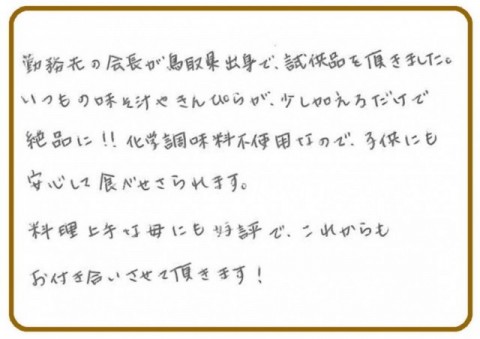 勤務先の会長が鳥取県出身で、試供品を頂きました。
いつもの味そ汁やきんぴらが、少し加えるだけで
絶品に!!化学調味料不使用なので、子供にも
安心して食べせさられます。
料理上手な母にも好評で、これからも
お付き合いさせて頂きます!